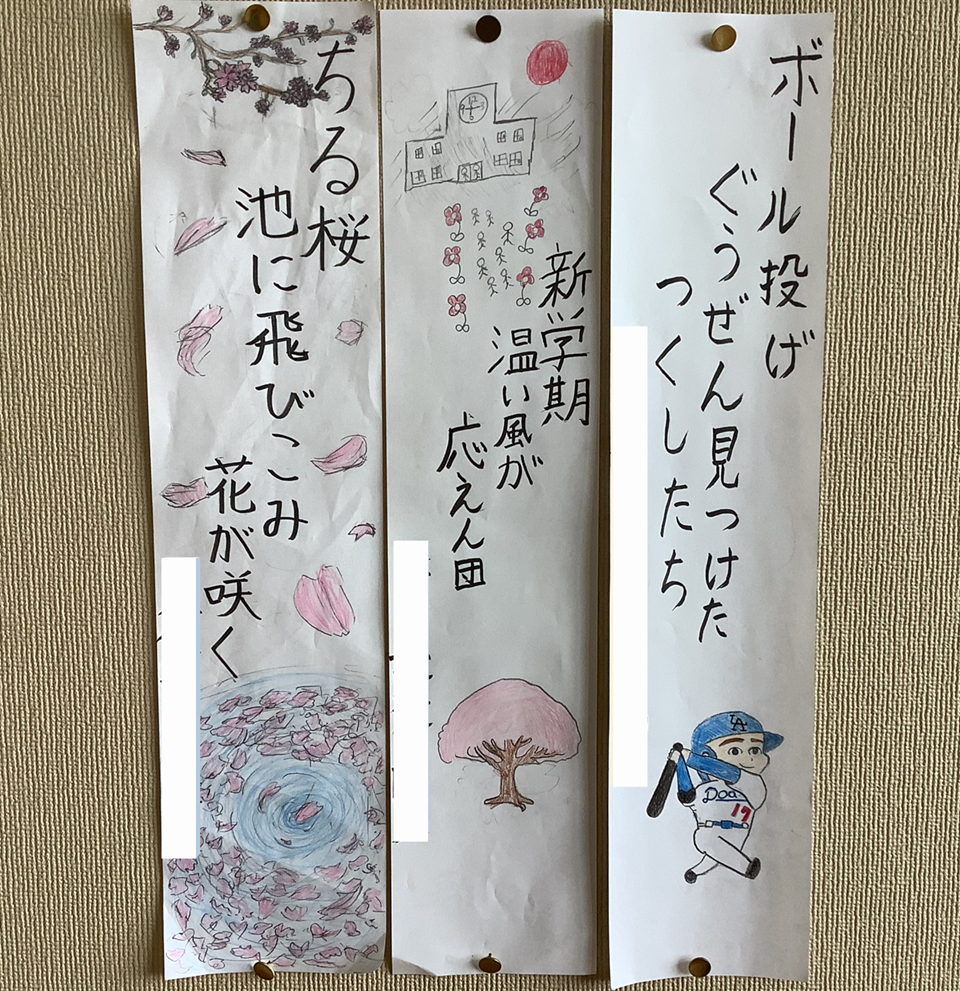 ボール投げ
ぐうぜん見つけた
つくしたち
LA
17
新学期
温い風が
応えん団
ちる桜
池に飛びこみ
花が咲く